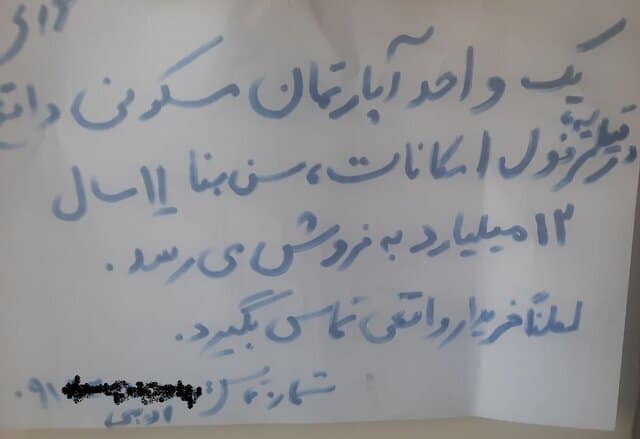 یک واحد آپارتمان مسکونی واقع
در قیطریه، فول امکانات، سن بنا ۱۱ سال
۱۳ میلیارد به فروش می رسد.
لطفاً خریدار واقعی تماس بگیرد.
شماره تماس: ۰۹۱
ادیبی